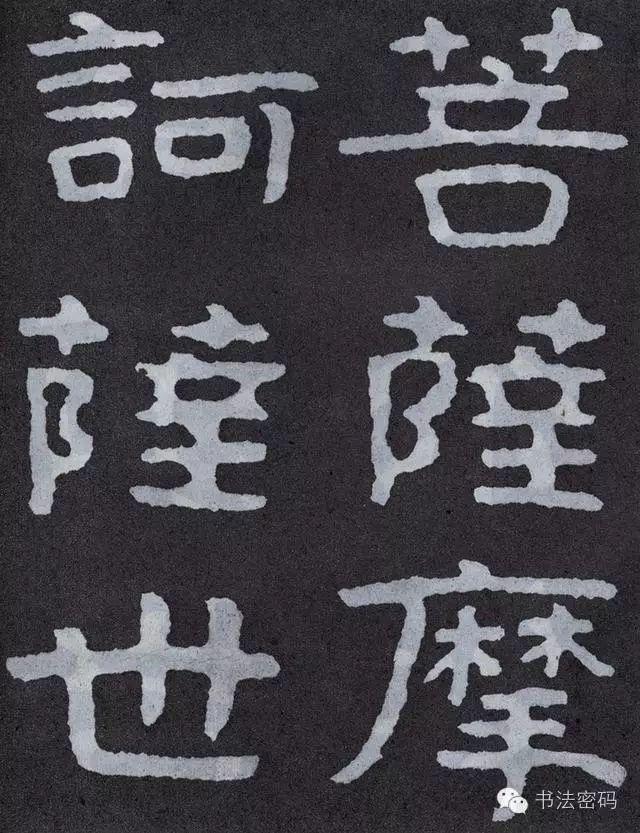 菩薩摩
訶薩世
书法密码